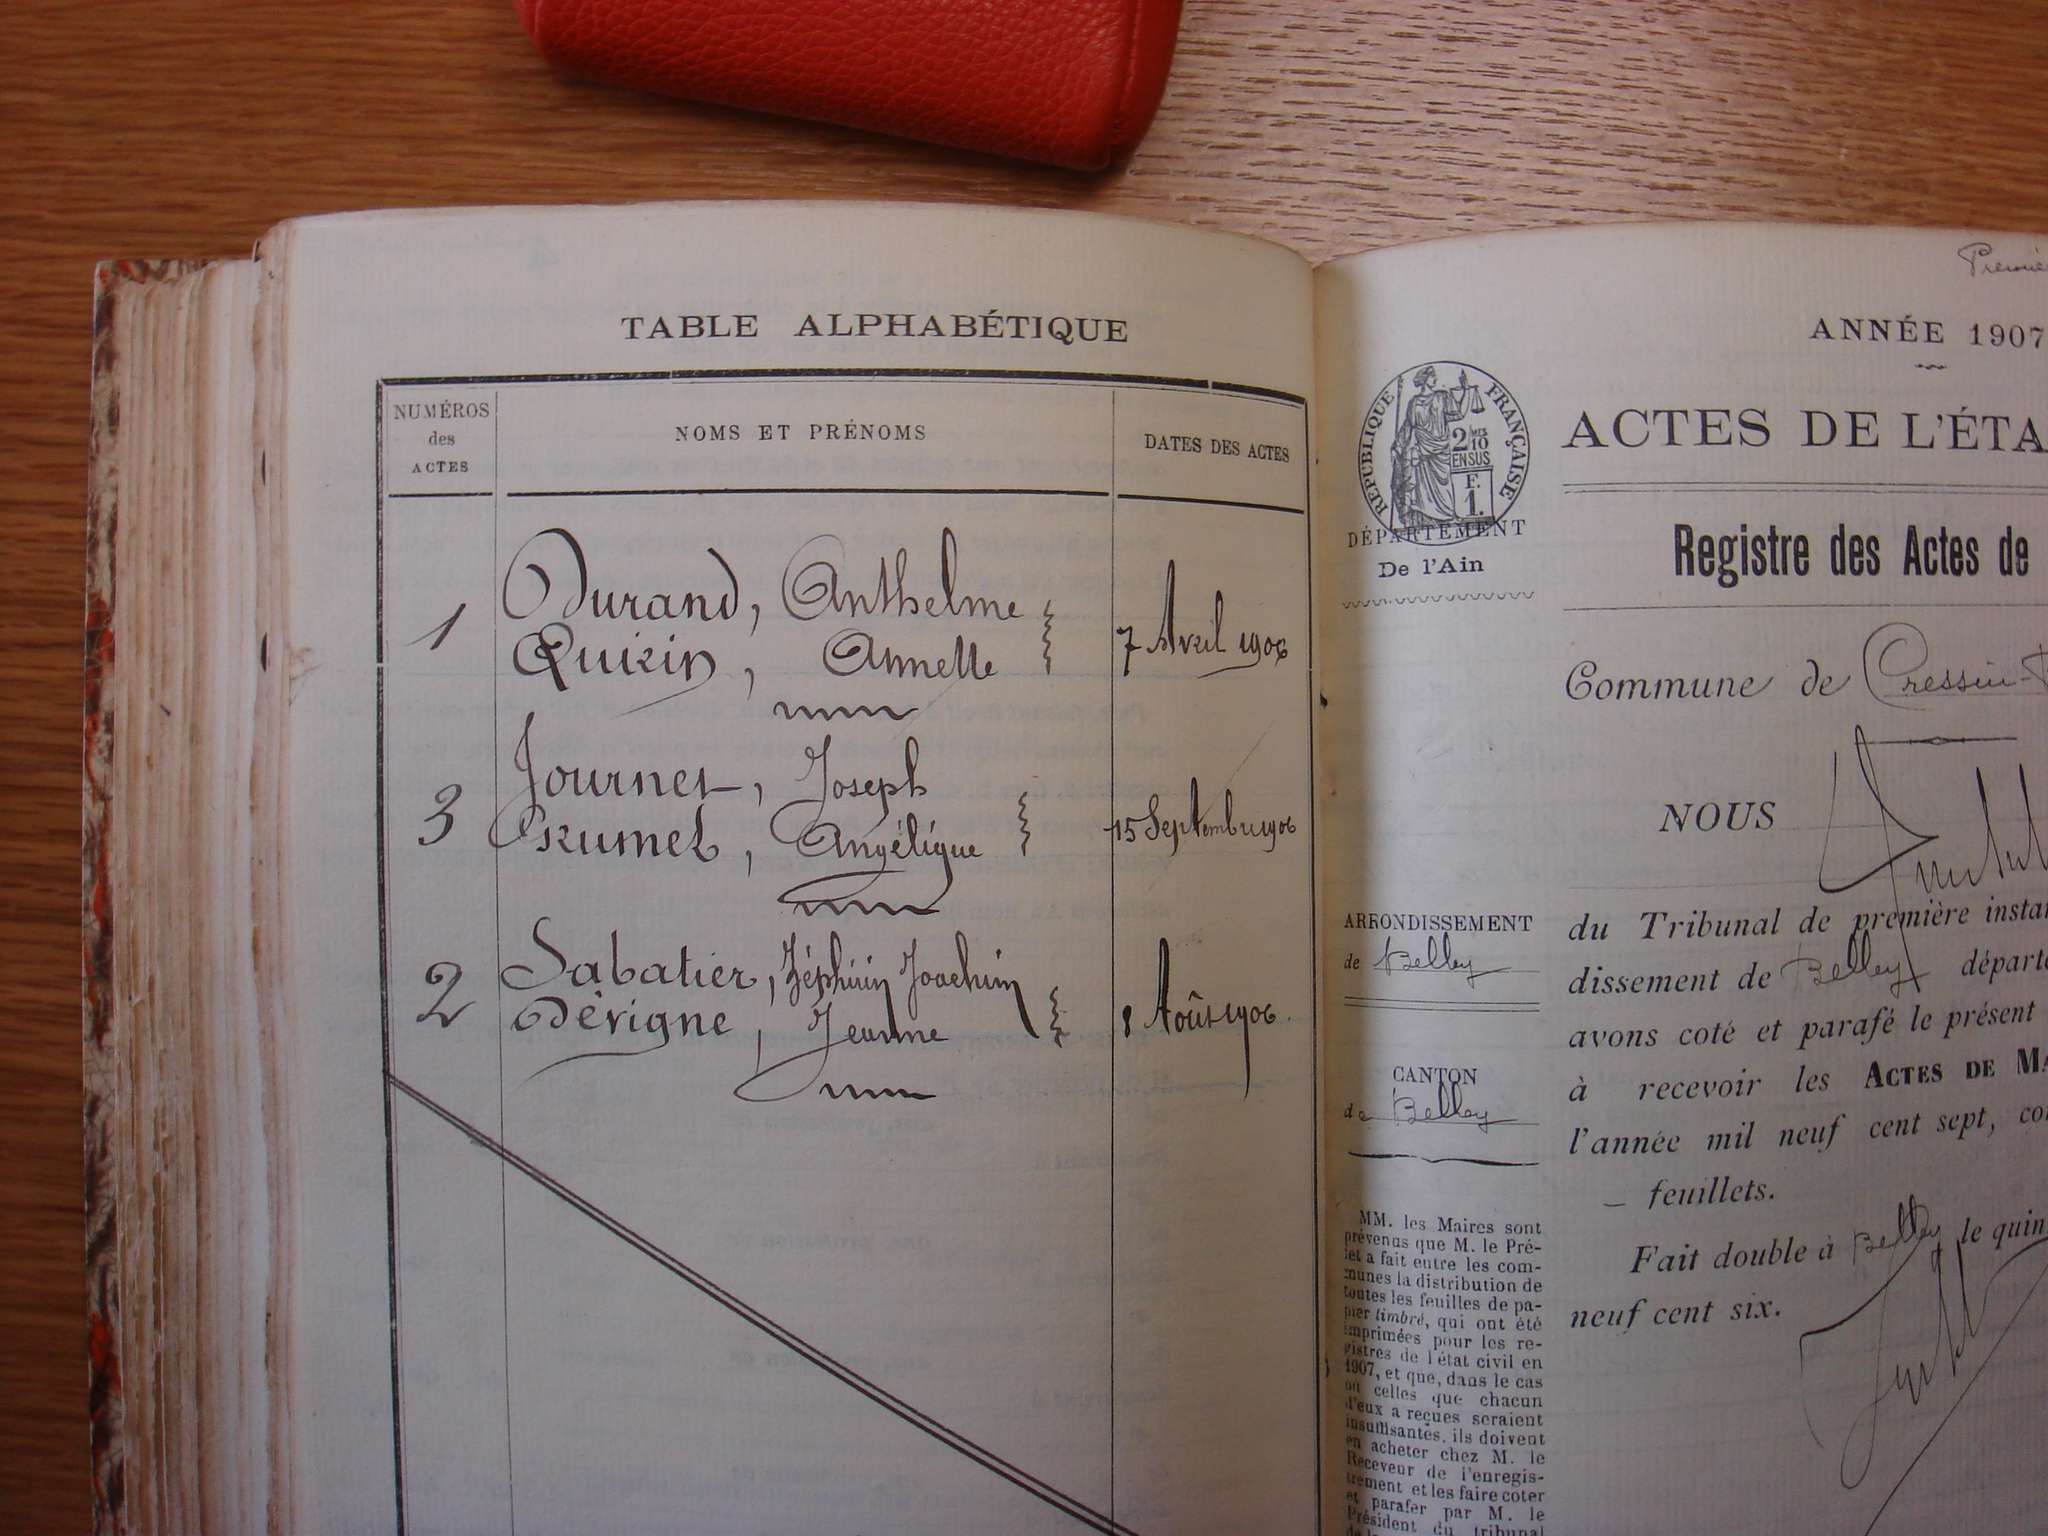 TABLE ALPHABÉTIQUE
NUMÉROS
des
ACTES
NOMS ET PRÉNOMS
DATES DES ACTES
1
Durand, Anthelme
Quizin, Annette
7 Avril 1906
3
Journet, Joseph
Brumet, Angélique
15 Septembre 1906
2
Sabatier, Zéphirin Joachim
Dérigne, Jeanne
8 Août 1906
Premie
ANNÉE 1907
RÉPUBLIQUE FRANÇAISE
2/10
EN SUS
F.
1.
DÉPARTEMENT
De l'Ain
ARRONDISSEMENT
de Belley
CANTON
de Belley
MM. les Maires sont
prévenus que M. le Pré-
fet a fait entre les com-
munes la distribution de
toutes les feuilles de pa-
pier timbré, qui ont été
imprimées pour les re-
gistres de l'état civil en
1907, et que, dans le cas
où celles que chacun
d'eux a reçues seraient
insuffisantes, ils doivent
en acheter chez M. le
Receveur de l'enregis-
trement et les faire coter
et parafer par M. le
Président du tribunal
ACTES DE L'ÉTA
Registre des Actes de
Commune de Cressin-
NOUS
du Tribunal de première instan
dissement de Belley départe
avons coté et parafé le présent
à recevoir les ACTES DE MA
l'année mil neuf cent sept, co
feuillets.
Fait double à Belley le quin
neuf cent six.